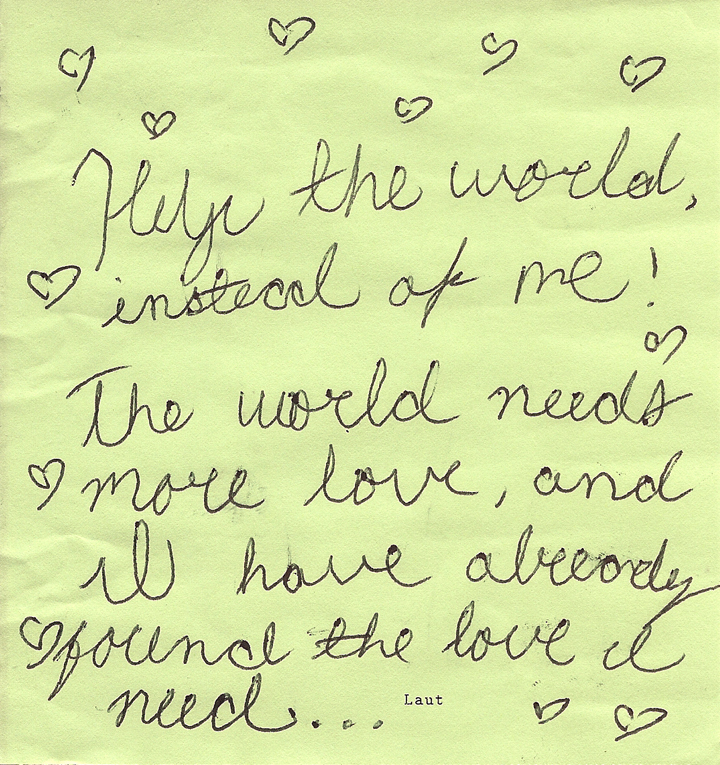 Help the world,
instead of me!
The world needs
more love, and
I have already
found the love I
need... Laut